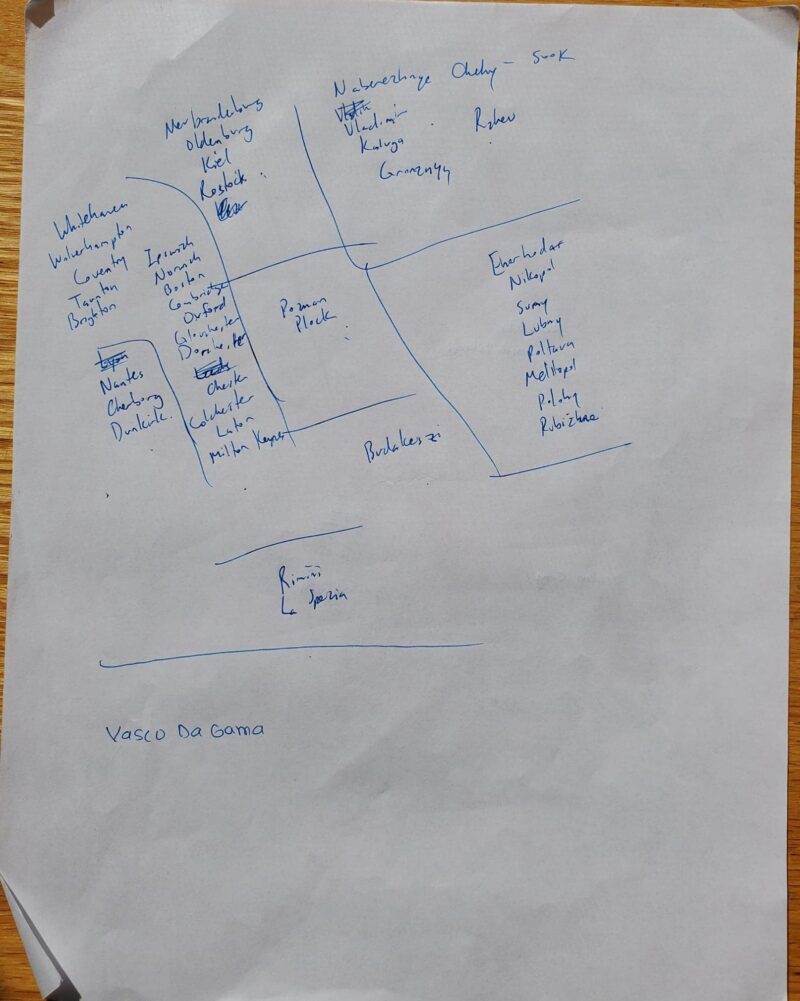 Neubrandenburg
Oldenburg
Kiel
Rostock
Naberezhnye Chelny - 500K
Vladimir
Kaluga
Rzhev
Groznyy
Whitehaven
Wolverhampton
Coventry
Taunton
Brighton
Ipswich
Norwich
Boston
Cambridge
Oxford
Gloucester
Dorchester
Leeds
Chester
Colchester
Luton
Milton Keynes
Lyon
Nantes
Cherborg
Dunkirk.
Poznan
Plock
Enerhodar
Nikopol
Sumy
Lubny
Poltava
Melitopol
Polohy
Rubizhne
Budakeszi
Rimini
La Spezia
Vasco Da Gama